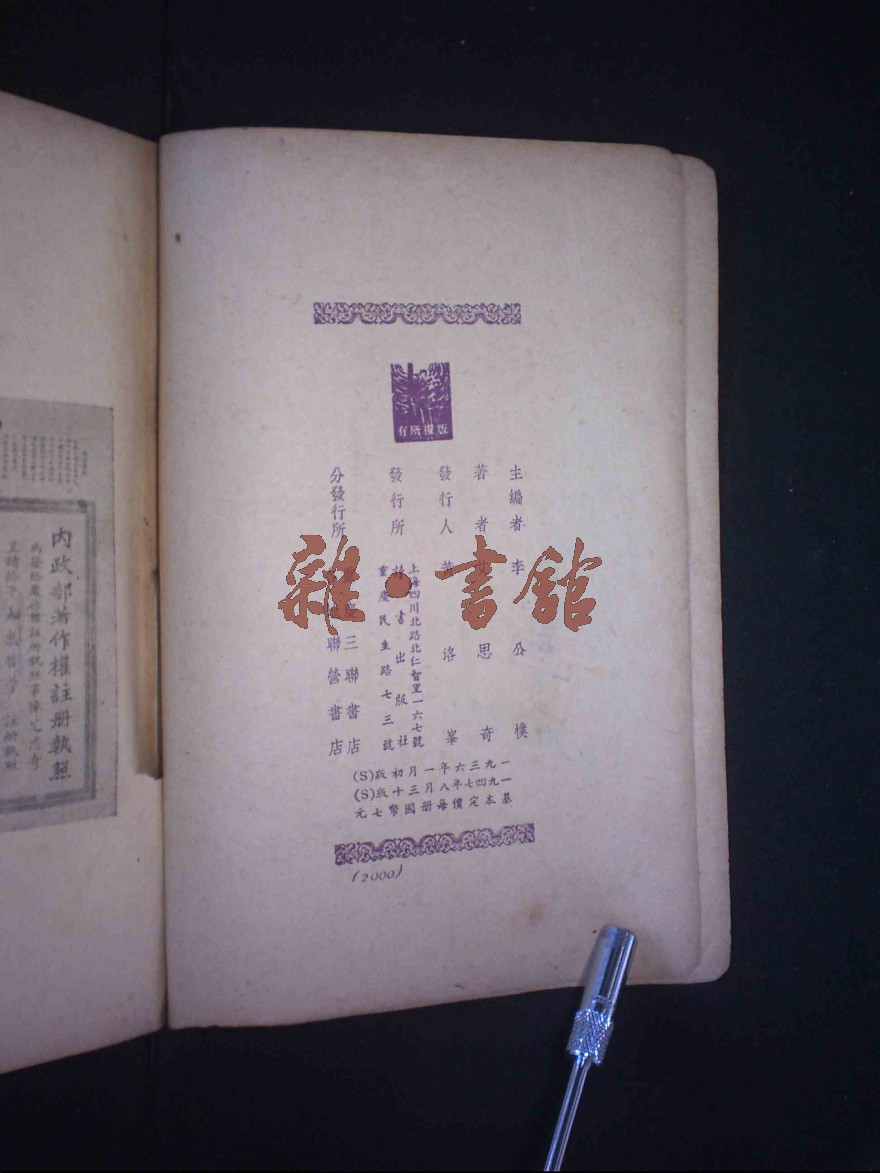 版權所有
主編者 李公樸
著者 艾思奇
發行人 黃洛峯
發行所
上海四川北路北仁智里一六七號
讀書出版社
重慶民生路七三號
分發行所
重慶三聯書店
聯營書店
一九三六年一月初版(S)
一九四七年八月十三版(S)
基本定價每册國幣七元
(2000)
雜·書館
內政部著作權註册執照